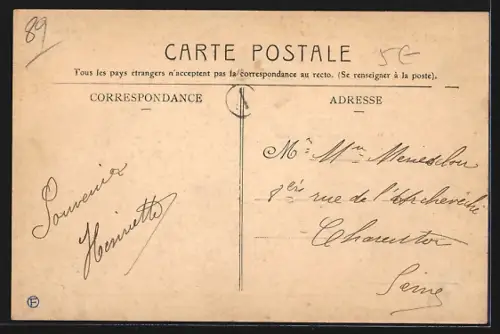 89
CARTE POSTALE
5€
Tous les pays étrangers n'acceptent pas la correspondance au recto. (Se renseigner à la poste).
CORRESPONDANCE
ADRESSE
Souvenir
Henriette
rue de l'Archevêché
Charenton
Seine
E